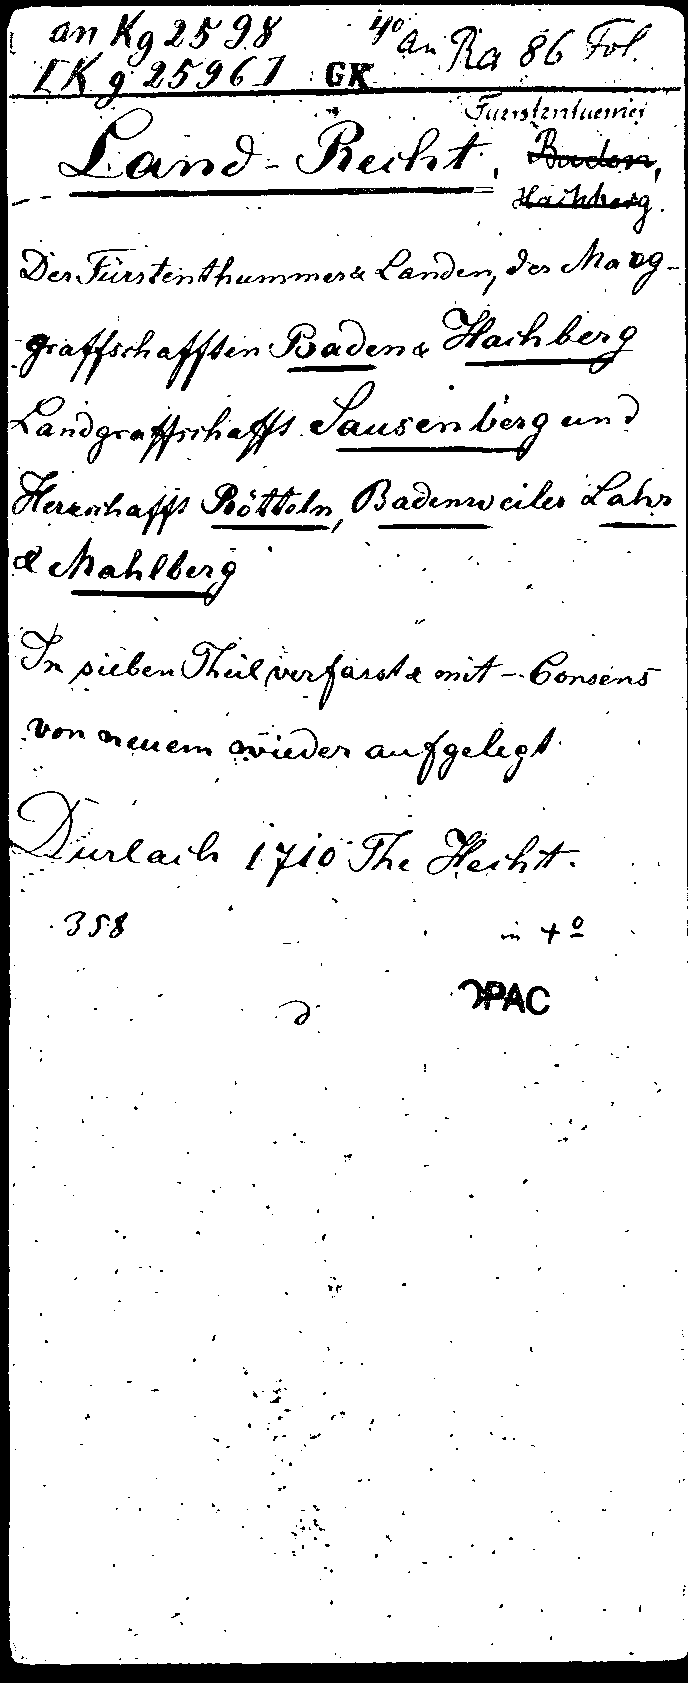 an Kg 2598 4° an Ra 86 Fol.
[Kg 2596] GK
Fuerstentuemer
Land-Recht, Baden,
Hachberg.
Der Fürstenthummer & Landen, der Marg-
graffschafften Baden & Hachberg
Landgraffschafft Sausenberg und
Herrschafft Rötteln, Badenweiler Lahr
& Mahlberg
In sieben Theil verfasst & mit - Consens
von neuem wieder aufgelegt
Durlach 1710 The Hecht.
358 in 4°
OPAC